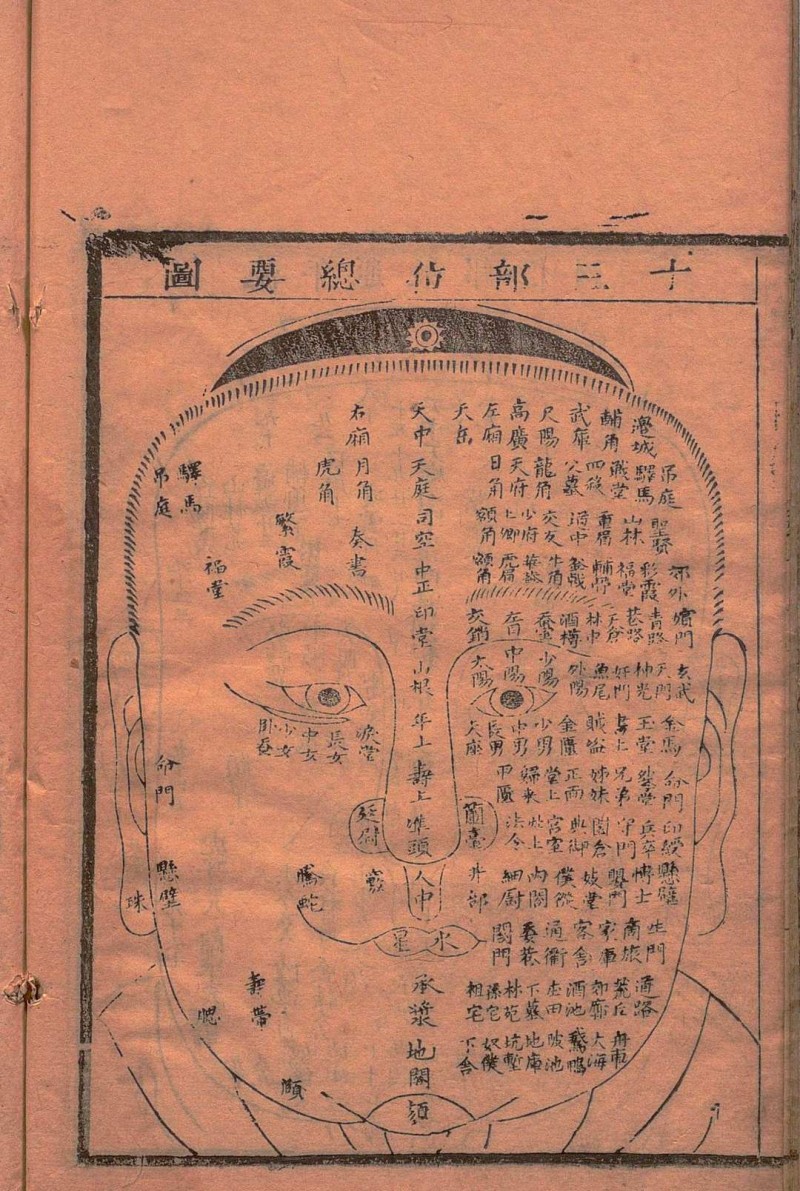 十三部位總要圖
邊城
輔角
武庫
尺陽
高廣
左廂
天岳
吊庭
驛馬
戰堂
四殺
父墓
龍角
天府
日角
聖賢
山林
重眉
道中
交友
少府
上卿
額角
郊外
彩霞
福堂
輔骨
牛角
虎眉
額角
嬪門
青路
巷路
天倉
林中
酒樽
蚕室
左目
交鎖
玄武
天門
神光
奸門
魚尾
外陽
少陽
中陽
太陽
金馬
玉堂
書上
賊盜
金匱
少男
中男
長男
夫座
命門
兄弟
姊妹
正面
堂上
歸來
甲匱
印綬
兵卒
守門
園倉
典御
宮室
灶上
法令
蘭臺
懸壁
博士
嬰門
妓堂
僕從
內閣
細厨
井部
生門
商旅
家庫
客舍
通衢
委巷
閤門
通路
荒丘
郊廓
酒池
庄田
下墓
林苑
孫宅
祖宅
舟車
大海
鵝鴨
陂池
地庫
坑塹
奴僕
下舍
天中
天庭
司空
中正
印堂
山根
年上
壽上
準頭
人中
水星
承漿
地閣
頦
右廂
月角
虎角
奏書
繁霞
驛馬
吊庭
福堂
淚堂
長女
中女
少女
卧蚕
命門
廷尉
懸壁
珠
騰蛇
壽帶
腮
頤